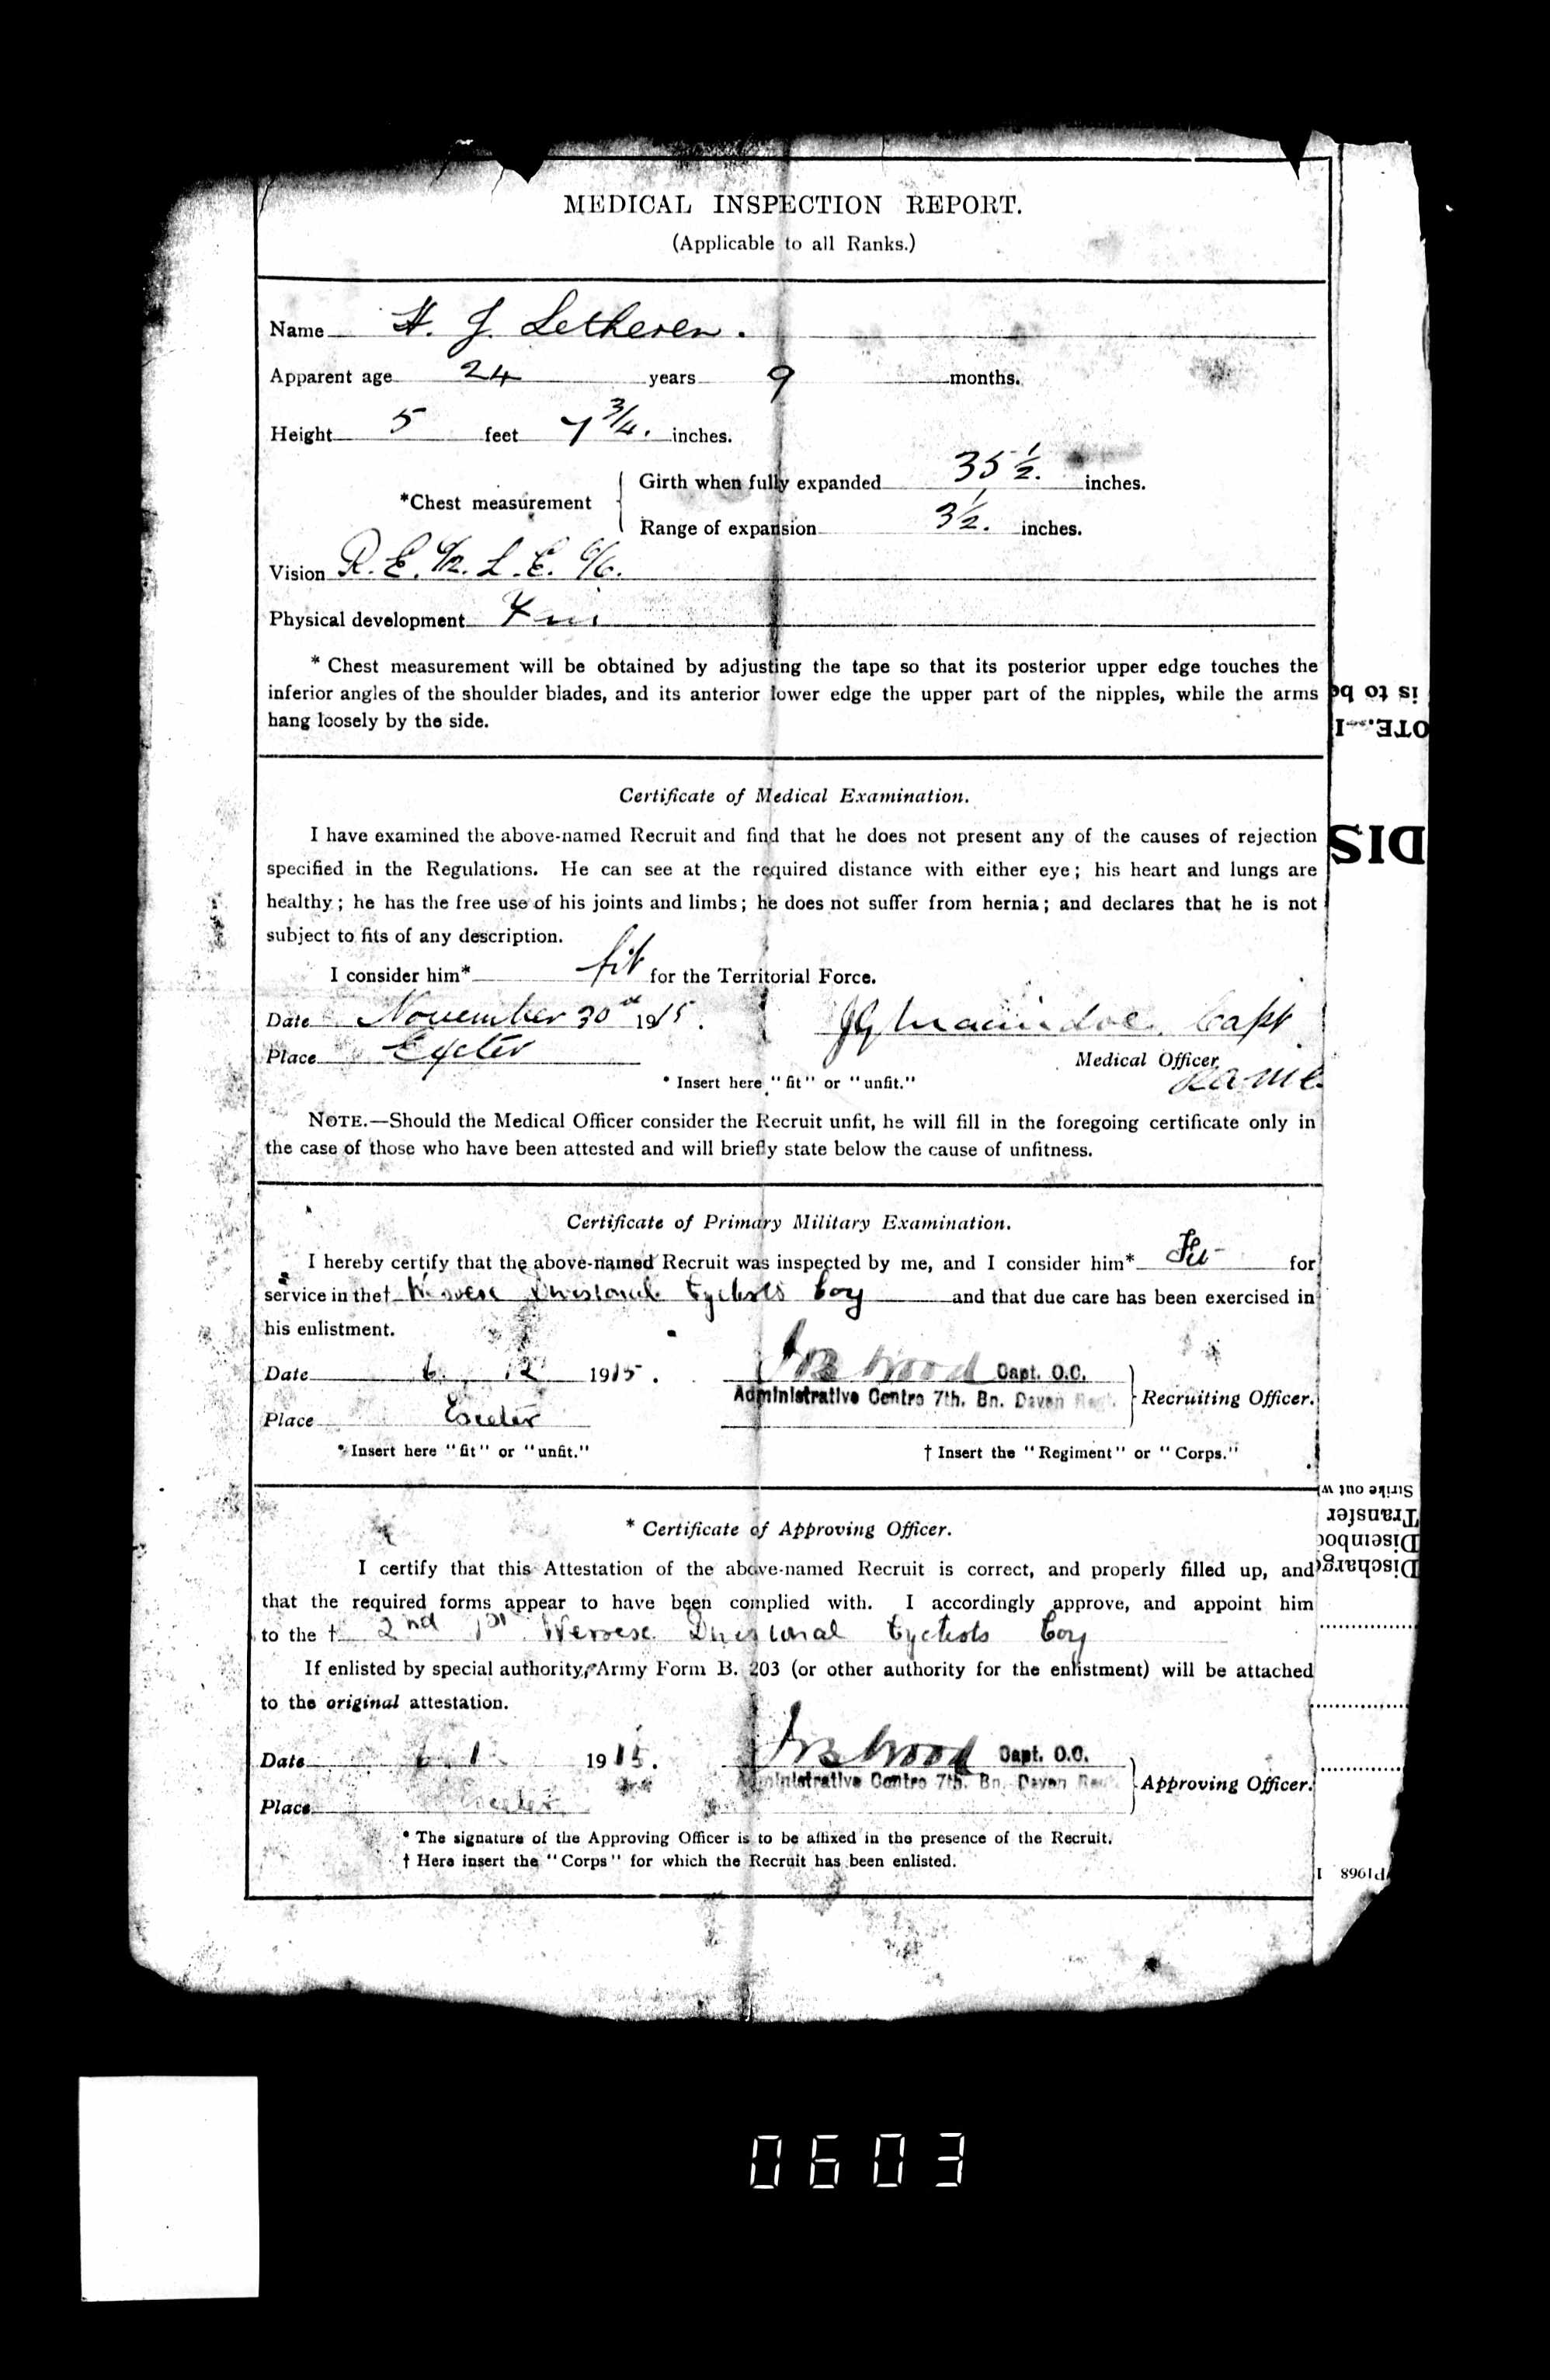 MEDICAL INSPECTION REPORT.
(Applicable to all Ranks.)
Name H. J. Letheren.
Apparent age 24 years 9 months.
Height 5 feet 7 3/4. inches.
*Chest measurement { Girth when fully expanded 35 1/2. inches.
Range of expansion 3 1/2. inches.
Vision R.E. 6/12. L.E. 6/6.
Physical development Fair
* Chest measurement will be obtained by adjusting the tape so that its posterior upper edge touches the
inferior angles of the shoulder blades, and its anterior lower edge the upper part of the nipples, while the arms
hang loosely by the side.
Certificate of Medical Examination.
I have examined the above-named Recruit and find that he does not present any of the causes of rejection
specified in the Regulations. He can see at the required distance with either eye; his heart and lungs are
healthy; he has the free use of his joints and limbs; he does not suffer from hernia; and declares that he is not
subject to fits of any description.
I consider him* fit for the Territorial Force.
Date November 30th 1915. Macindoe. Capt
Place Exeter Medical Officer.
RAMC
* Insert here "fit" or "unfit."
NOTE.—Should the Medical Officer consider the Recruit unfit, he will fill in the foregoing certificate only in
the case of those who have been attested and will briefly state below the cause of unfitness.
Certificate of Primary Military Examination.
I hereby certify that the above-named Recruit was inspected by me, and I consider him* Fit for
service in the† Wessex Divisional Cyclists Coy and that due care has been exercised in
his enlistment.
Date 6. 12 1915. Wood Capt. O.C.
Administrative Centre 7th. Bn. Devon Regt. } Recruiting Officer.
Place Exeter
* Insert here "fit" or "unfit."
† Insert the "Regiment" or "Corps."
* Certificate of Approving Officer.
I certify that this Attestation of the above-named Recruit is correct, and properly filled up, and
that the required forms appear to have been complied with. I accordingly approve, and appoint him
to the † 2nd 1st Wessex Divisional Cyclists Coy
If enlisted by special authority, Army Form B. 203 (or other authority for the enlistment) will be attached
to the original attestation.
Date 1915. Wood Capt. O.C.
Administrative Centre 7th. Bn. Devon Regt. } Approving Officer.
Place Exeter
* The signature of the Approving Officer is to be affixed in the presence of the Recruit.
† Here insert the "Corps" for which the Recruit has been enlisted.
is to be
OTE.—I
DIS
Strike out w
Transfer
Disembod
Discharg
P1968 1
0603